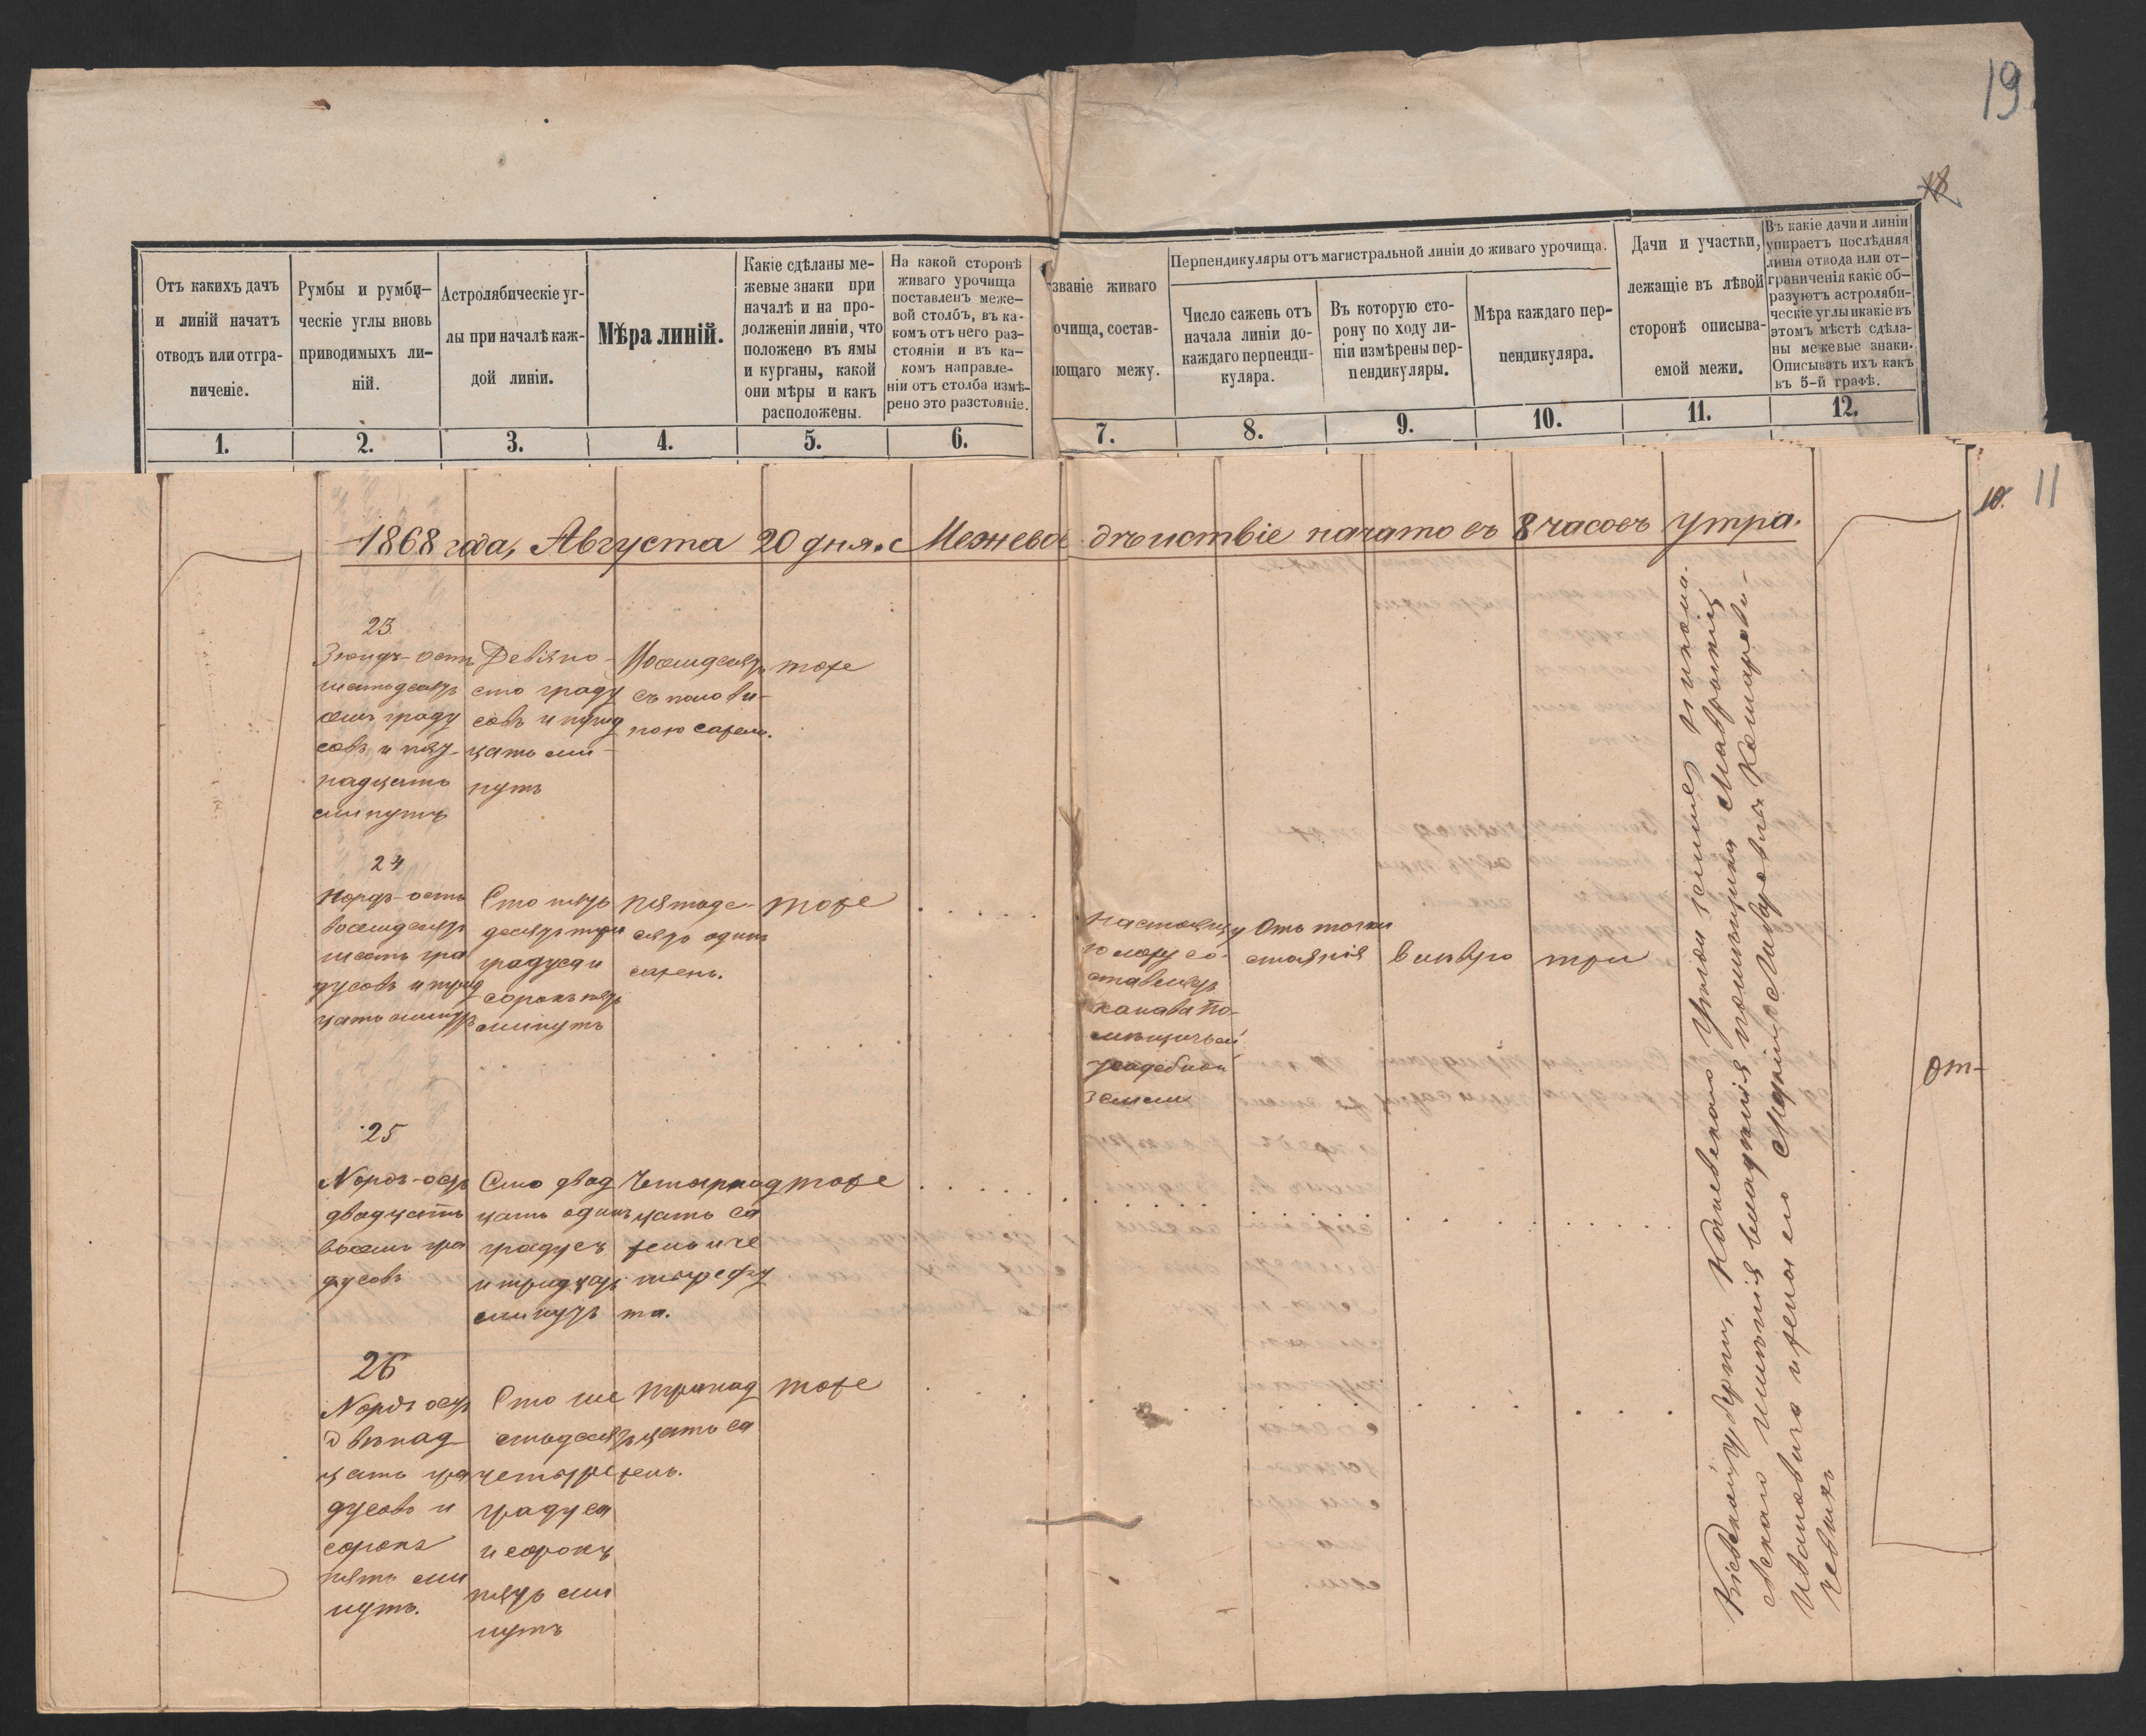 19.
18
Отъ какихъ дачъ
и линій начатъ
отводъ или отгра-
ниченіе.
Румбы и румби-
ческіе углы вновь
приводимыхъ ли-
ній.
Астролябическіе уг-
лы при началѣ каж-
дой линіи.
Мѣра линій.
Какіе сдѣланы ме-
жевые знаки при
началѣ и на про-
долженіи линіи, что
положено въ ямы
и курганы, какой
они мѣры и какъ
расположены.
На какой сторонѣ
живаго урочища
поставленъ меже-
вой столбъ, въ ка-
комъ отъ него раз-
стояніи и въ ка-
комъ направле-
ніи отъ столба измѣ-
рено это разстояніе.
званіе живаго
очища, состав-
ющаго межу.
Перпендикуляры отъ магистральной линіи до живаго урочища.
Число сажень отъ
начала линіи до-
каждаго перпенди-
куляра.
Въ которую сто-
рону по ходу ли-
ніи измѣрены пер-
пендикуляры.
Мѣра каждаго пер-
пендикуляра.
Дачи и участки,
лежащіе въ лѣвой
сторонѣ описыва-
емой межи.
Въ какіе дачи и линіи
упираетъ послѣдняя
линія отвода или от-
граниченія какіе об-
разуютъ астроляби-
ческіе углы икакіе въ
этомъ мѣстѣ сдѣла-
ны межевые знаки.
Описывать ихъ какъ
въ 5-й графѣ.
1. 2. 3. 4. 5. 6. 7. 8. 9. 10. 11. 12.
10. 11
1868 года, Августа 20 дня. Межевое дѣйствіе начато въ 8 часовъ утра.
23.
Зюндъ-остъ
шестьдесятъ
семь граду
совъ и пят-
надцать
минутъ
Девяно-
сто граду
совъ и трид
цать ми-
нутъ
Восемдесятъ
съ полови-
ною сажен.
тоже
24
Нордъ-остъ
восемдесятъ
шесть гра
дусовъ и трид
цать минутъ
Сто пять
десятъ три
градуса и
сорокъ пять
минутъ
Пятьде-
сятъ одинъ
сажень.
тоже
Настоящу
ю межу со-
ставляетъ
канава по-
мѣщичьей
усадебной
земли
Отъ точки
стоянія
влѣво
три
25
Nордъ-остъ
двадцать
восемь гра
дусовъ
Сто двад
цать одинъ
градусъ
и тридцать
минутъ
Четырнад
цать са
жень и че
тыре фу
та.
тоже
26
Nордъ остъ
двѣнад
цать гра
дусовъ и
сорокъ
пять ми
нутъ.
Сто ше
стьдесятъ
четыре
градуса
и сорокъ
пять ми
нутъ
Тринад
цать са
жень.
тоже
Кіевской губерніи, Каневскаго уѣзда земля
имѣнія владѣнія помѣщика
Ивановича и жены его
чевыхъ
От-